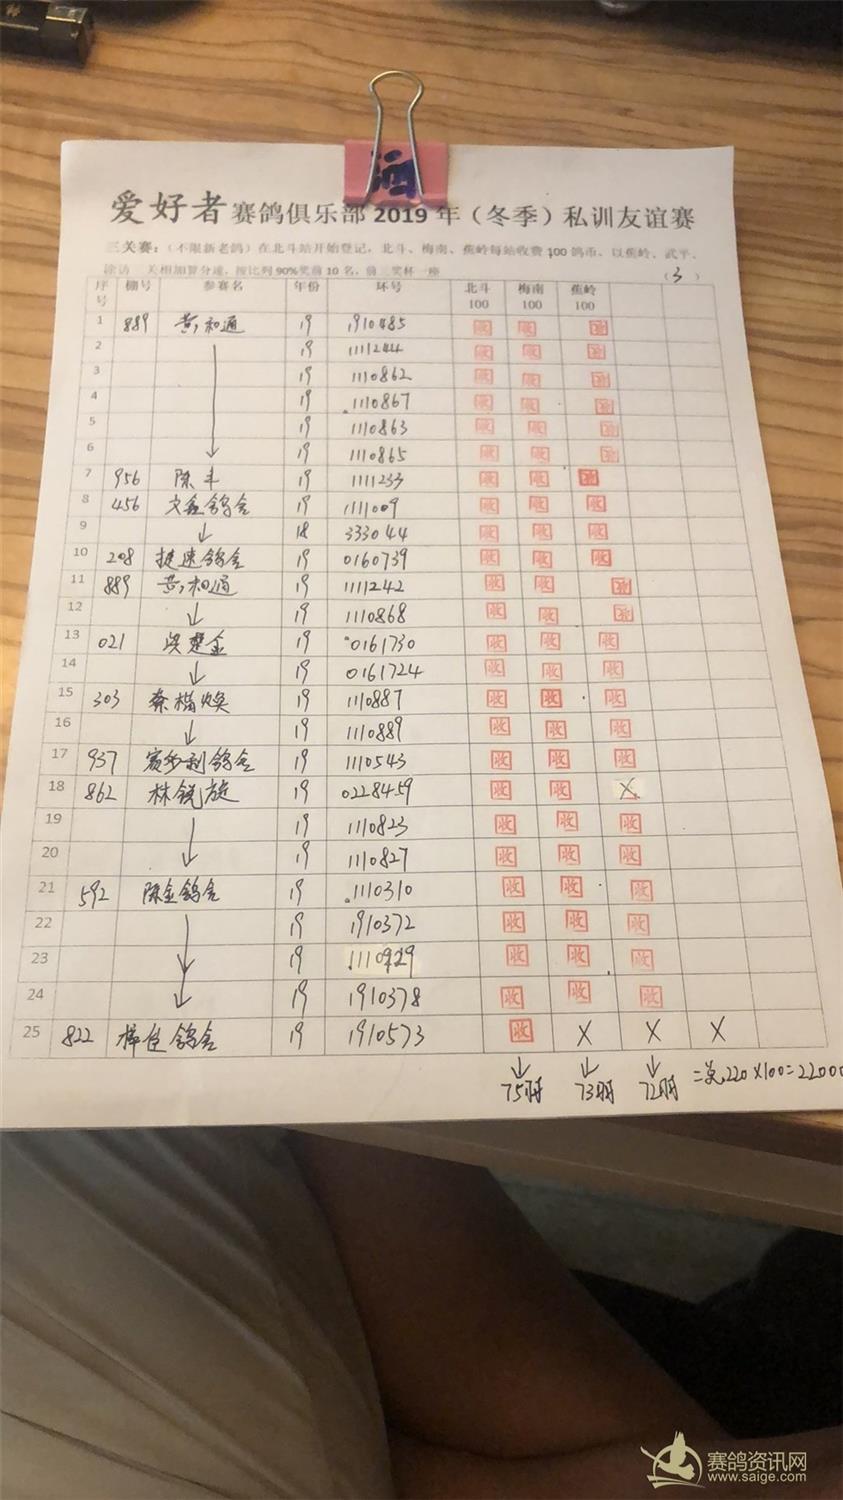 爱好者赛鸽俱乐部2019年（冬季）私训友谊赛
三关赛：（不限新老鸽）在北斗站开始登记，北斗、梅南、蕉岭每站收费100鸽币、以蕉岭、武平、
关相加算分速，按比列90%奖前10名，前三奖杯一座 （3）
序号 棚号 参赛名 年份 环号 北斗100 梅南100 蕉岭100
1 889 黄和通 19 1910485 收 收 收
2 19 1111244 收 收 收
3 19 1110862 收 收 收
4 19 1110867 收 收 收
5 19 1110863 收 收 收
6 19 1110865 收 收 收
7 956 陈丰 19 1111233 收 收 收
8 456 文鑫鸽舍 19 1111009 收 收 收
9 ↓ 18 333044 收 收 收
10 208 捷速鸽舍 19 0160739 收 收 收
11 889 黄和通 19 1111242 收 收 收
12 ↓ 19 1110868 收 收 收
13 021 洪楚金 19 0161730 收 收 收
14 ↓ 19 0161724 收 收 收
15 303 19 1110887 收 收 收
16 ↓ 19 1110889 收 收 收
17 937 鸽舍 19 1110543 收 收 收
18 862 林锐旋 19 0228459 收 收 X
19 19 1110823 收 收 收
20 19 1110827 收 收 收
21 592 陈金鸽舍 19 1110310 收 收 收
22 19 1910372 收 收 收
23 19 1110929 收 收 收
24 19 1910378 收 收 收
25 822 鸽舍 19 1910573 收 X X X
75羽 73羽 72羽 =共220×100=22000
赛鸽资讯网
www.saige.com